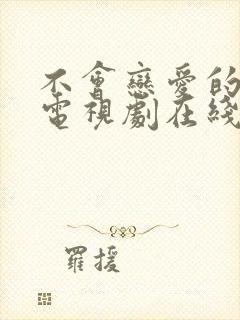 不會戀愛的
電視劇在綫
羅援